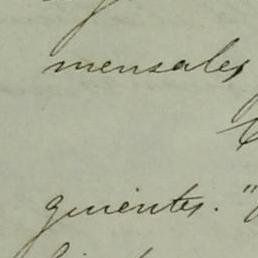 mensales
guientes. "